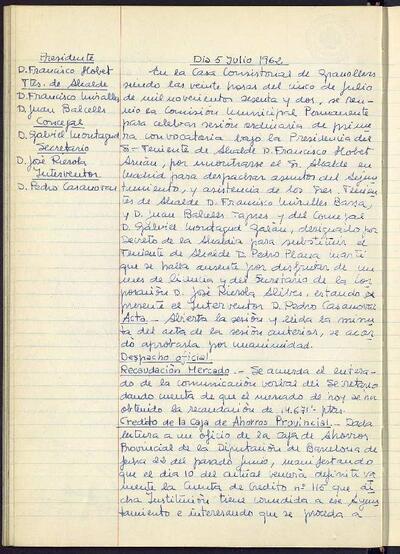 Presidente
D. Francisco Hobet
Ttes. de Alcalde
D. Francisco Miralles
D. Juan Balcells
Concejal
D. Gabriel Montagud
Secretario
D. José Rierola
Interventor
D. Pedro Casanovas
Dia 5 Julio 1962
En la Casa Consistorial de Granollers
siendo las veinte horas del cinco de julio
de mil novecientos sesenta y dos, se reu-
nio la Comisión Municipal Permanente
para celebrar sesión ordinaria de prime-
ra convocatoria bajo la Presidencia del
Sr. Teniente de Alcalde D. Francisco Hobet
por encontrarse el Sr. Alcalde en
Madrid para despachar asuntos del Ayun-
tamiento, y asistencia de los Sres. Tenien-
tes de Alcalde D. Francisco Miralles Barsa,
y D. Juan Balcells y del Concejal
D. Gabriel Montagud Galán, designado por
Decreto de la Alcaldia para substituir el
Teniente de Alcalde D. Pedro Plana Martí
que se halla ausente por disfrutar de un
mes de licencia y del Secretario de la Cor-
poración D. José Rierola Alibés, estando
presente el Interventor D. Pedro Casanovas
Acta.- Abierta la sesión y leida la minu-
ta del acta de la sesión anterior, se acor-
dó aprobarla por unanimidad.
Despacho oficial
Recaudación Mercado.- Se acuerda el entera-
do de la comunicación verbal del Secretario
dando cuenta de que el mercado de hoy se ha
obtenido la recaudación de 14.671'- ptas.
Credito de la Caja de Ahorros Provincial.- Dada
lectura a un oficio de la Caja de Ahorros
Provincial de la Diputación de Barcelona de
fecha 22 del pasado junio, manifestando
que el dia 10 del actual vencerá definitiva
mente la Cuenta de Credito nº 115 que di
cha Institución tiene concedida a ese Ayun
tamiento e interesando que se proceda a